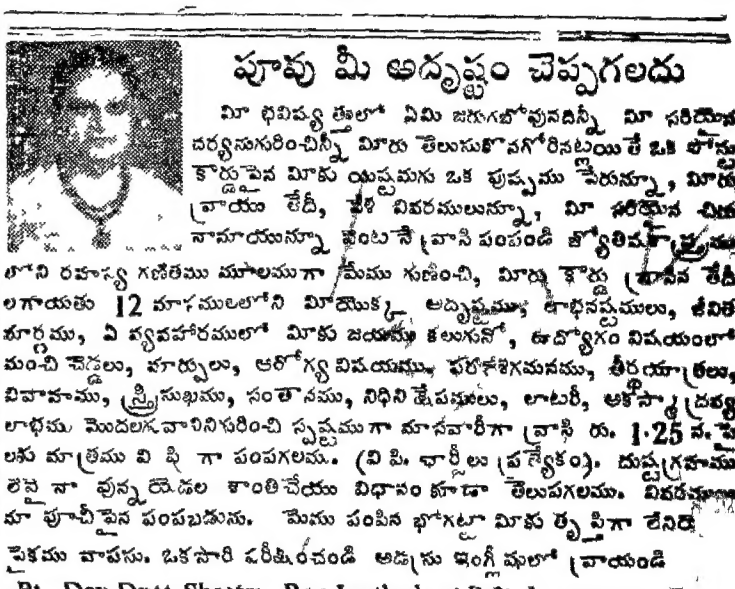 పూవు మీ అదృష్టం చెప్పగలదు
మీ భవిష్యత్తులో ఏమి జరుగబోవునదిన్నీ మీ సరియైన
చర్యనుగురించిన్నీ మీరు తెలుసుకొనగోరినట్లయితే ఒక పోస్టు
కార్డుపైన మీకు యిష్టమగు ఒక పుష్పము పేరున్నూ, మీరు
వ్రాయు తేదీ, వేళ వివరములున్నూ, మీ సరియైన చిరు
నామాయున్నూ వెంటనే వ్రాసి పంపండి జ్యోతిషశాస్త్రము
లోని రహస్య గణితము మూలముగా మేము గుణించి, మీరు కార్డు వ్రాసిన తేదీ
లగాయతు 12 మాసములలోని మీయొక్క అదృష్టము, లాభనష్టములు, జీవిత
మార్గము, ఏ వ్యవహారములో మీకు జయము కలుగునో, ఉద్యోగం విషయంలో
మంచి చెడ్డలు, మార్పులు, ఆరోగ్య విషయము, పరదేశగమనము, తీర్థయాత్రలు,
వివాహము, స్త్రీసుఖము, సంతానము, నిధినిక్షేపములు, లాటరీ, ఆకస్మాద్ద్రవ్య
లాభము మొదలగువానినిగురించి స్పష్టముగా మాసవారీగా వ్రాసి రు. 1-25 న. పై
లకు మాత్రము వి పి గా పంపగలము. (వి పి. ఛార్జీలు ప్రత్యేకం). దుష్టగ్రహము
లేవైనా వున్నయెడల శాంతిచేయు విధానం కూడా తెలుపగలము. వివరములు
మా పూచీపైన పంపబడును. మేము పంపిన భోగట్టా మీకు తృప్తిగా లేనిచో
పైకము వాపసు. ఒకసారి పరీక్షించండి అడ్రసు ఇంగ్లీషులో వ్రాయండి